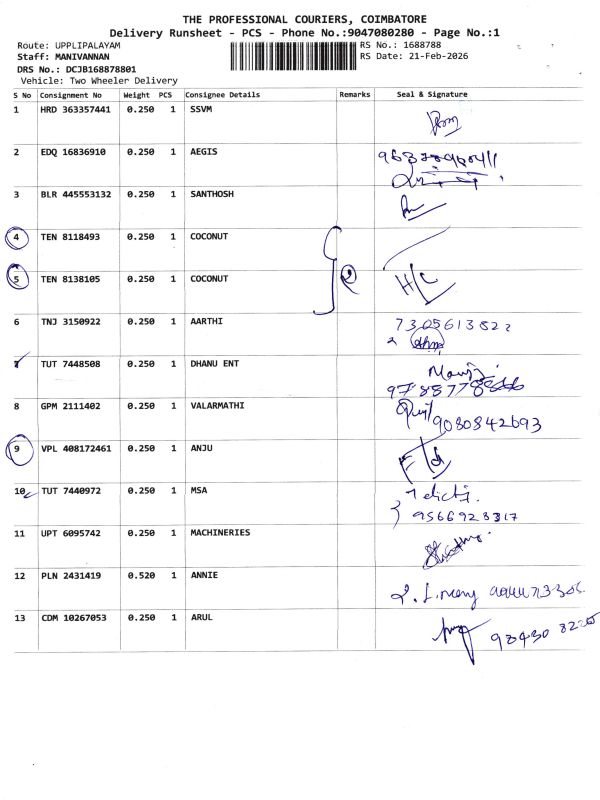 THE PROFESSIONAL COURIERS, COIMBATORE
Delivery Runsheet - PCS - Phone No.:9047080280 - Page No.:1
Route: UPPLIPALAYAM
RS No.: 1688788
Staff: MANIVANNAN
RS Date: 21-Feb-2026
DRS No.: DCJB168878801
Vehicle: Two Wheeler Delivery
S No Consignment No Weight PCS Consignee Details Remarks Seal & Signature
1 HRD 363357441 0.250 1 SSVM
2 EDQ 16836910 0.250 1 AEGIS
3 BLR 445553132 0.250 1 SANTHOSH
4 TEN 8118493 0.250 1 COCONUT
5 TEN 8138105 0.250 1 COCONUT H/C
6 TNJ 3150922 0.250 1 AARTHI 7305613822
7 TUT 7448508 0.250 1 DHANU ENT
8 GPM 2111402 0.250 1 VALARMATHI 9080842693
9 VPL 408172461 0.250 1 ANJU
10 TUT 7440972 0.250 1 MSA
9566923317
11 UPT 6095742 0.250 1 MACHINERIES
12 PLN 2431419 0.520 1 ANNIE
13 CDM 10267053 0.250 1 ARUL